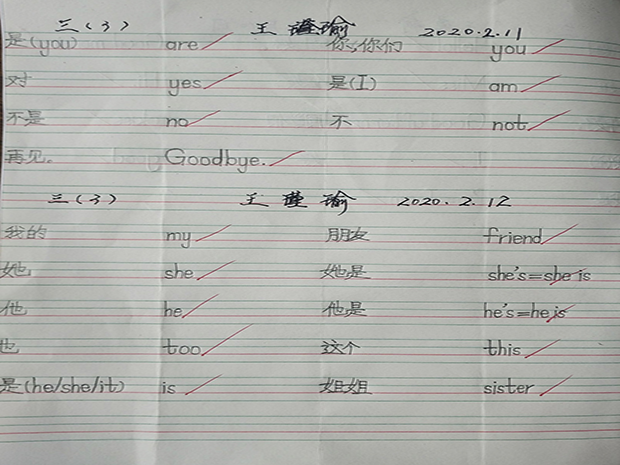 三(3) 王瑾瑜 2020.2.11
是(you) are 你,你们 you
对 yes 是(I) am
不是 no 不 not
再见。 Goodbye.
三(3) 王瑾瑜 2020.2.12
我的 my 朋友 friend
她 she 她是 she's=she is
他 he 他是 he's=he is
也 too 这个 this
是(he/she/it) is 姐姐 sister